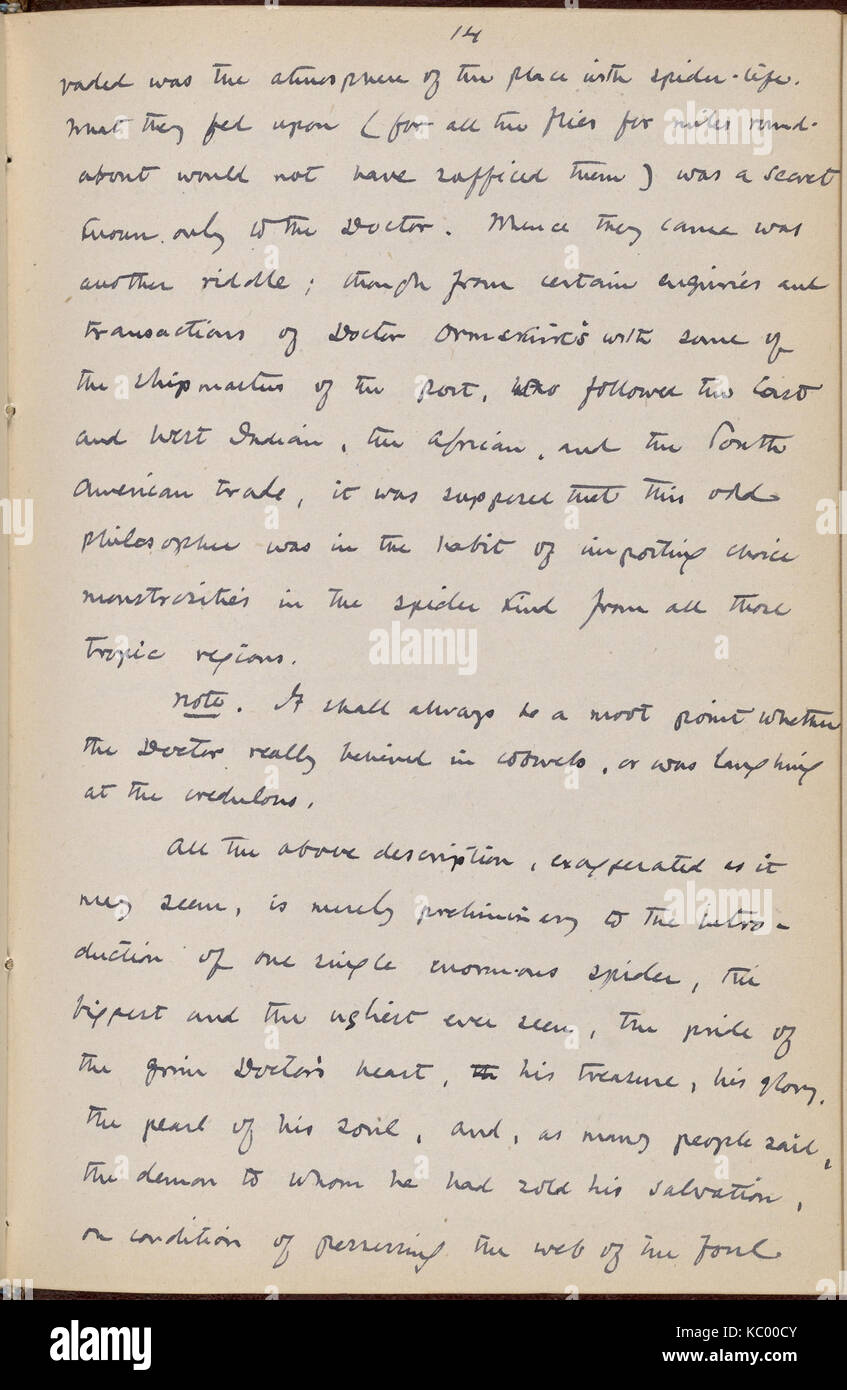 14
vaded was the atmosphere of the place with spider-life.
What they fed upon (for all the flies for miles round-
about would not have sufficed them) was a secret
known only to the Doctor. Whence they came was
another riddle; though from certain enquiries and
transactions of Doctor Ormskirk's with some of
the shipmasters of the port, who followed the East
and West Indian, the African, and the South
American trade, it was supposed that this odd
philosopher was in the habit of importing choice
monstrosities in the spider kind from all those
tropic regions.
Note. It shall always be a moot point whether
the Doctor really believed in cobwebs, or was laughing
at the credulous.
All the above description, exaggerated as it
may seem, is merely preliminary to the intro-
duction of one single enormous spider, the
biggest and the ugliest ever seen, the pride of
the grim Doctor's heart, th his treasure, his glory,
the pearl of his soul, and, as many people said,
the demon to whom he had sold his salvation,
on condition of possessing the web of the foul
alamy
a
alamy stock photo
alamy
Image ID: KC00CY
www.alamy.com